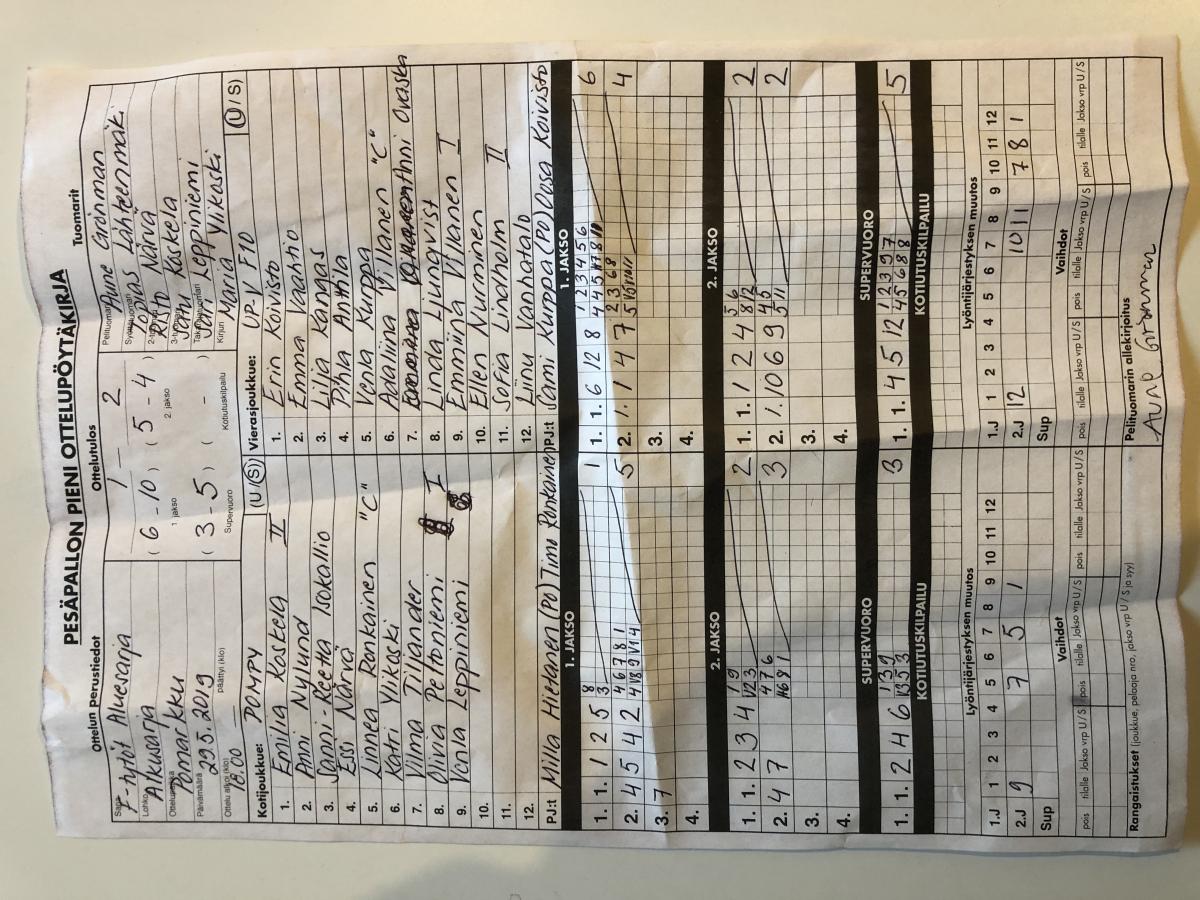 PESÄPALLON PIENI OTTELUPÖYTÄKIRJA
Ottelun perustiedot
Sarja F-tytöt Aluesarja
Lohko Alkusarja
Ottelupaikka Pomarkku
Päivämäärä 29.5.2019
Ottelu alkoi (klo) 18.00 päättyi (klo)
Ottelutulos
1 – 2
( 6 - 10 ) ( 5 - 4 )
1. jakso 2. jakso
( 3 - 5 ) ( - )
Supervuoro Kotiutuskilpailu
Tuomarit
Pelituomari Aune Grönman
Syöttötuomari Tobias Lähteenmäki
2-tuomari Närvä
3-tuomari Koskela
Takatuomari Leppiniemi
Kirjuri Maria Ylikoski
Kotijoukkue: POMPY (U / S)
1. Emilia Koskela II
2. Anni Nylund
3. Sanni-Reetta Isokallio
4. Essi Närvä
5. Linnea Ronkainen "C"
6. Katri Ylikoski
7. Vilma Tiljander
8. Olivia Peltoniemi I
9. Venla Leppiniemi
10.
11.
12.
PJ:t Milla Hietanen (PO) Timo Ronkainen
Vierasjoukkue: UP-V F10 (U / S)
1. Erin Koivisto
2. Emma Vaahtio
3. Lilja Kangas
4. Pihla Anttila
5. Venla Kurppa
6. Adaliina Yllanen "C"
7. Anni Ovaska
8. Linda Ljungvist
9. Emmiina Yllanen I
10. Ellen Nurminen
11. Sofia Lindholm II
12. Liinu Vanhatalo
PJ:t Sami Kurppa (PO) Oosa Koivisto
1. JAKSO
1. 1. 1 2 5 8 3 1
2. 4 5 4 2 5
3. 7
4.
1. JAKSO
1. 1. 6 12 8 6
2. 1. 1 4 7 4
3.
4.
2. JAKSO
1. 1. 2 3 4 2
2. 4 7 3
3.
4.
2. JAKSO
1. 1. 1 2 4 2
2. 1. 10 6 9 2
3.
4.
SUPERVUORO
1. 1. 2 4 6 3
SUPERVUORO
1. 1. 4 5 12 5
KOTIUTUSKILPAILU
KOTIUTUSKILPAILU
Lyöntijärjestyksen muutos
1.J 1 2 3 4 5 6 7 8 9 10 11 12
2.J 9 7 5 1
Sup
Vaihdot
pois tilalle Jakso vrp U / S pois tilalle Jakso vrp U / S pois tilalle Jakso vrp U / S
Lyöntijärjestyksen muutos
1.J 1 2 3 4 5 6 7 8 9 10 11 12
2.J 12 10 11 7 8 1
Sup
Vaihdot
pois tilalle Jakso vrp U / S pois tilalle Jakso vrp U / S pois tilalle Jakso vrp U / S
Rangaistukset (joukkue, pelaaja nro, jakso vrp U / S ja syy)
Pelituomarin allekirjoitus
Aune Grönman